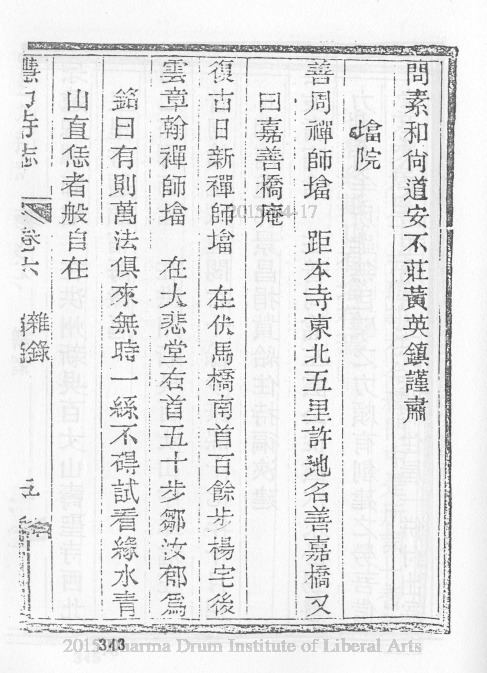 問素和尙道安不莊黃英鎮謹肅
塔院
善周禪師塔 距本寺東北五里許地名善嘉橋又
曰嘉善橋庵
復古日新禪師塔 在伏馬橋南首百餘步楊宅後
雲章翰禪師塔 在大悲堂右首五十步鄒汝郁爲
銘曰有則萬法俱來無時一絲不碍試看綠水靑
山直恁者般自在
寺志 卷六 雜錄 五
343
2015 Dharma Drum Institute of Liberal Arts